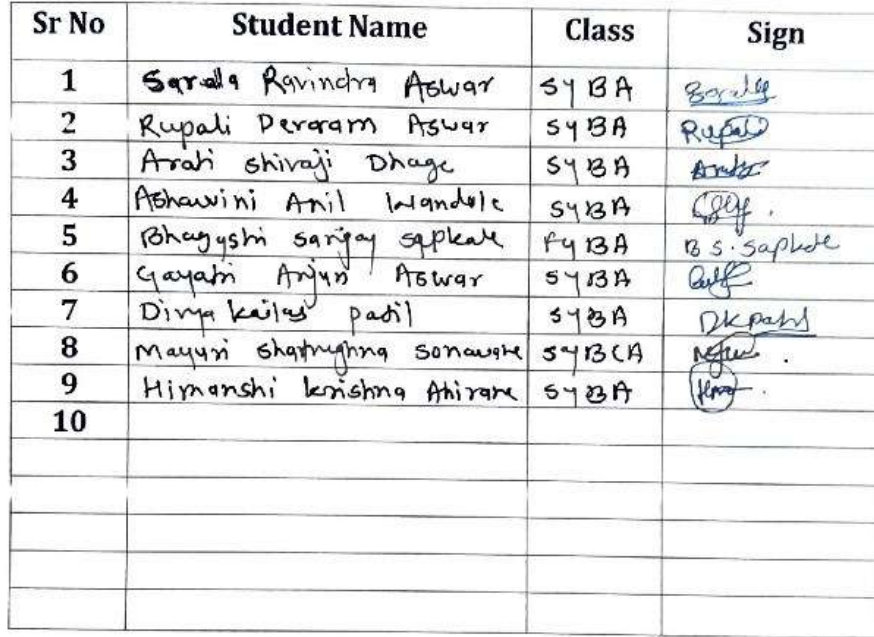 Sr No Student Name Class Sign
1 Sarala Ravindra Aswar SYBA
2 Rupali Devaram Aswar SYBA Rupali
3 Arati shivaji Dhage SYBA
4 Ashawini Anil SYBA
5 Bhagyshri sanjay sapkale FYBA B S. Sapkale
6 Gayatri Arjun Aswar SYBA
7 Divya kailas patil SYBA DKpatil
8 Mayuri shatrughna sonawane SYBCA
9 Himanshi krishna Ahirare SYBA
10